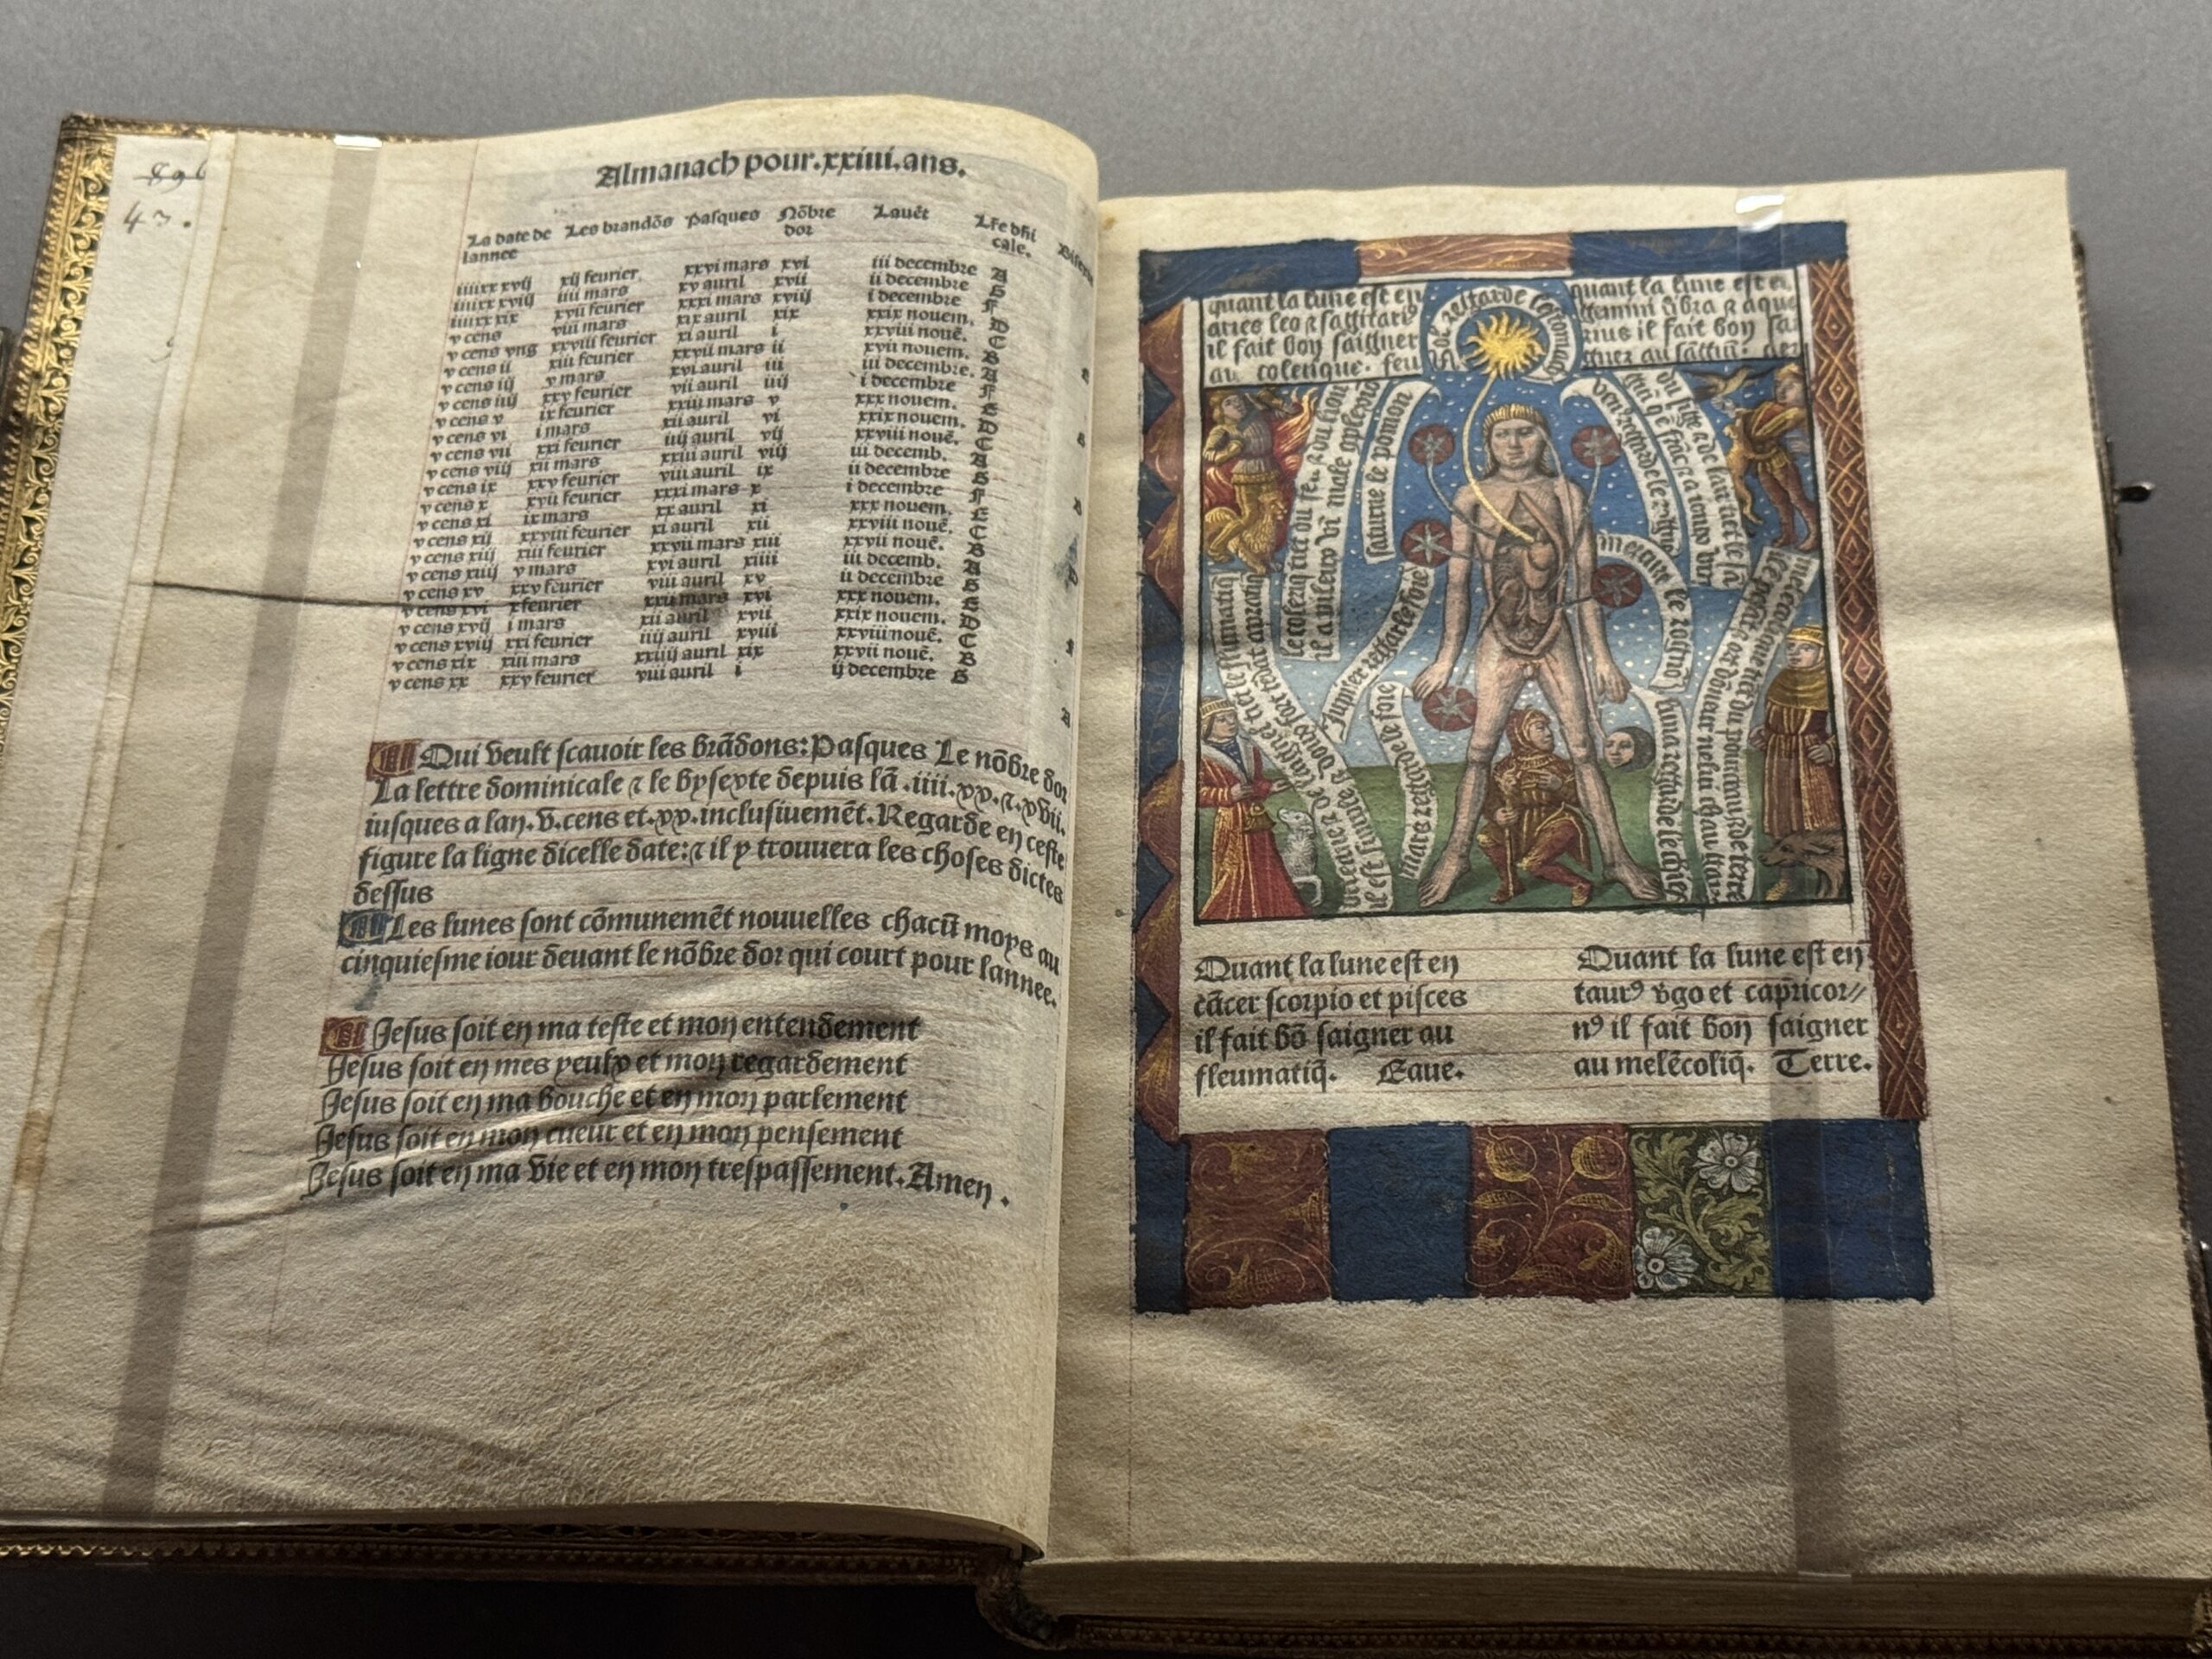 896
43.
Almanach pour.xxiiii.ans.
La date de lannee Les brandõs Pasques Nõbre dor Lauẽt Lr̃e dñicale.
iiiixx xvij xij feurier. xxvi mars xvi iii decembre A
iiiixx xviij iiii mars xv auril xvii ii decembre G
iiiixx xix xvii feurier xxxi mars xviij i decembre F
v cens viii mars xix auril xix xxix nouem. D
v cens vng xxviii feurier xi auril i xxviii nouẽ. C
v cens ii xiii feurier xxvii mars ii xvii nouem. B
v cens iij v mars xvi auril iii iii decembre. A
v cens iiij xxv feurier vii auril iiij i decembre F
v cens v ix feurier xxiii mars v xxx nouem. E
v cens vi i mars xii auril vi xxix nouem. D
v cens vii xxi feurier iiij auril vij xxviii nouẽ. C
v cens viij xii mars xxiii auril viij iii decemb. A
v cens ix xxv feurier viii auril ix ii decembre G
v cens x xvii feurier xxxi mars x i decembre F
v cens xi ix mars xx auril xi xxx nouem. E
v cens xij xxviii feurier xi auril xii xxviii nouẽ. C
v cens xiij xiii feurier xxvii mars xiii xxvii nouẽ. B
v cens xiiij v mars xvi auril xiiii iii decemb. A
v cens xv xxv feurier viii auril xv ii decembre G
v cens xvi x feurier xxii mars xvi xxx nouem. E
v cens xvij i mars xii auril xvii xxix nouem. D
v cens xviij xxi feurier iiij auril xviii xxviii nouẽ. C
v cens xix xiii mars xxiiij auril xix xxvii nouẽ. B
v cens xx xxv feurier viii auril i ij decembre G
Qui veult scauoir les brãdons: Pasques Le nõbre dor
La lettre dominicale ⁊ le bysexte depuis lã .iiii.xx.⁊.xvii.
iusques a lan.v.cens et.xx.inclusiuemẽt.Regarde en ceste
figure la ligne dicelle date:⁊ il y trouuera les choses dictes
dessus
Les lunes sont cõmunemẽt nouuelles chacũ moys au
cinquiesme iour deuant le nõbre dor qui court pour lannee.
Jesus soit en ma teste et mon entendement
Jesus soit en mes yeulx et mon regardement
Jesus soit en ma bouche et en mon parlement
Jesus soit en mon cueur et en mon pensement
Jesus soit en ma vie et en mon trespassement.Amen.
quant la lune est en
aries leo ⁊ sagitariꝰ
il fait bon saigner
au colerique. feu
Sol regarde lestomac
quant la lune est en
gemini libra ⁊ aqua
rius il fait bon sai
gner au
saturne le pomon
Jupiter regarde le foie
mars regarde le foie
mercure le rongnõ
luna regarde le chief
Quant la lune est en
cãcer scorpio et pisces
il fait bõ saigner au
fleumatiq̃. Eaue.
Quant la lune est en
taurꝰ vgo et capricor//
nꝰ il fait bon saigner
au melẽcoliq̃. Terre.